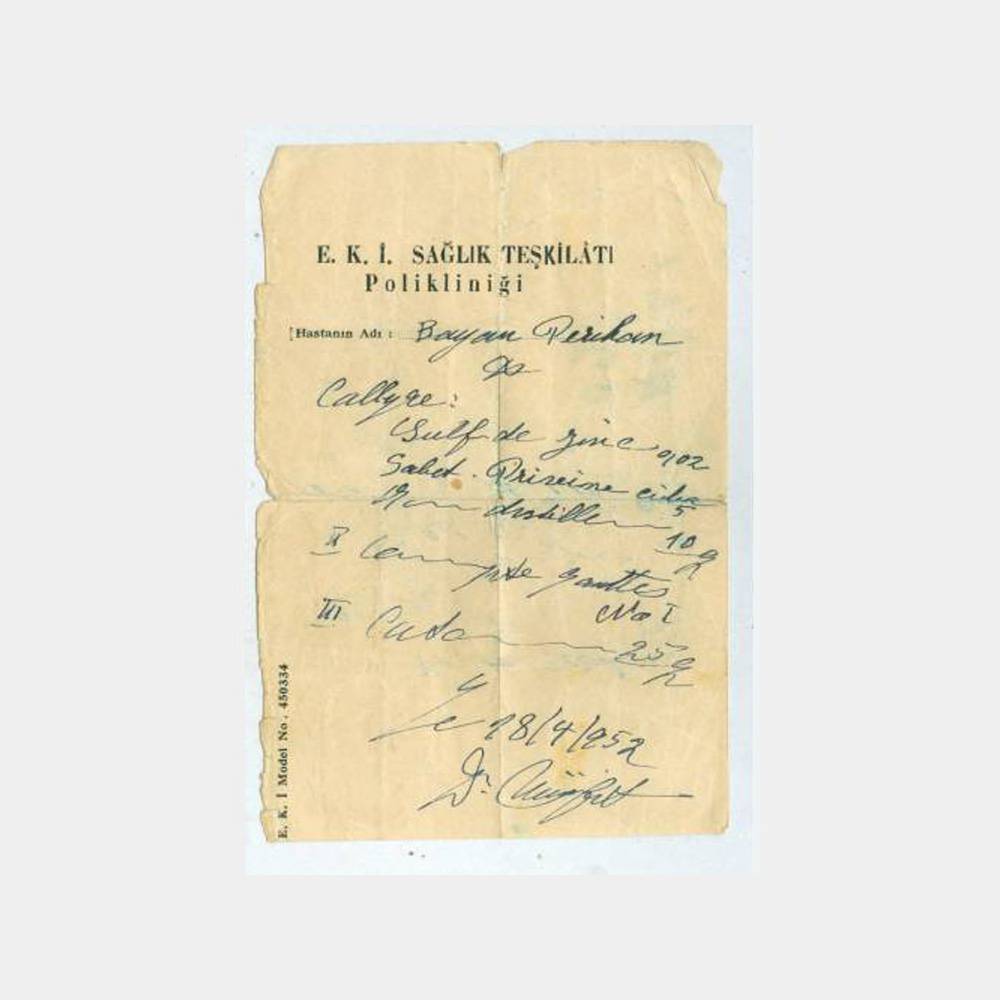 E. K. İ. SAĞLIK TEŞKİLÂTI
Polikliniği
[Hastanın Adı : Bayan Perihan
Collyre:
Sulf de zinc 0,02
Priscine ciba 5
distille 10 g
II gouttes
No I
III 25 g
Le 18/4/952
Dr.
E. K. İ Model No. 450334